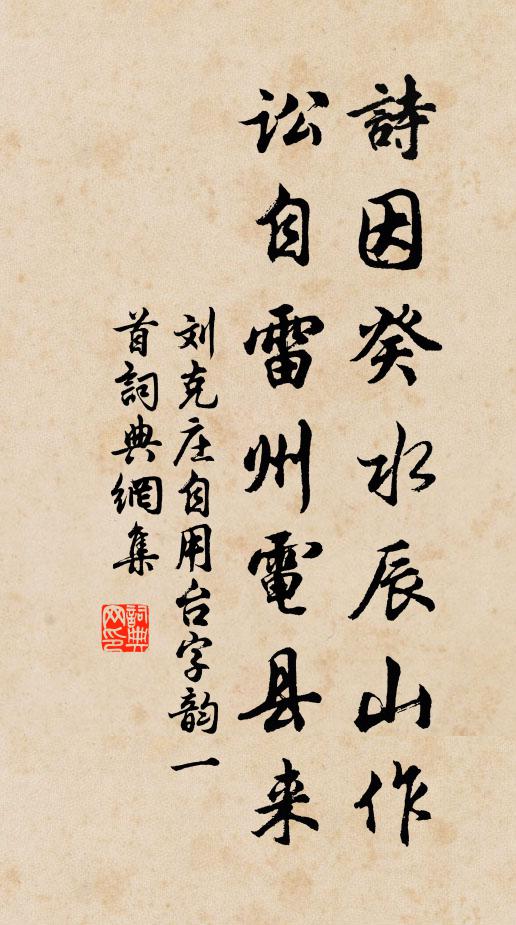 詩因癸水辰山作
訟自雷州電县来
刘克庄自用台字韵一
首詞典網集
詞典
网印